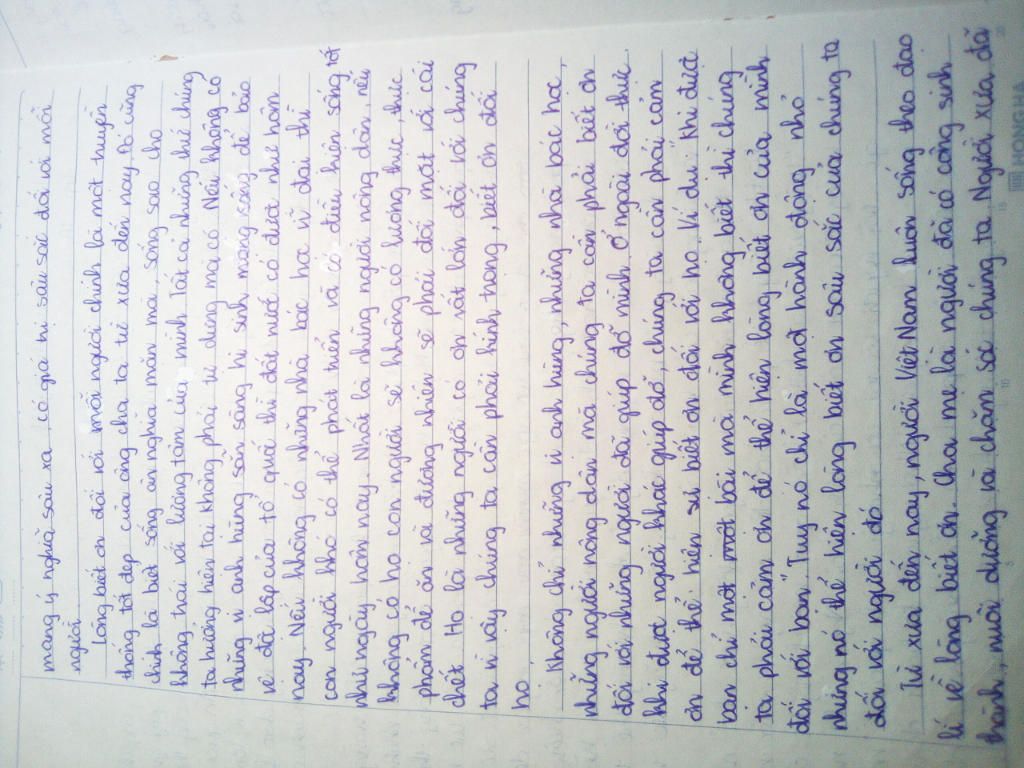 mang ý nghĩa sâu xa, có giá trị sâu sắc đối với mỗi
người.
Lòng biết ơn đối với mỗi người chính là một truyền
thống tốt đẹp của ông cha ta từ xưa đến nay. Đó cũng
chính là biết sống ân nghĩa mặn mà, sống sao cho
không trái với lương tâm của mình. Tất cả những thứ chúng
ta hưởng hiện tại không phải tự dưng mà có. Nếu không có
những vị anh hùng sẵn sàng hi sinh mạng sống để bảo
vệ độc lập của tổ quốc thì đất nước có được như hôm
nay. Nếu không có những nhà bác học vĩ đại thì
con người khó có thể phát triển và có điều kiện sống tốt
như ngày hôm nay. Nhất là những người nông dân, nếu
không có họ con người sẽ không có lương thực, thực
phẩm để ăn và đương nhiên sẽ phải đối mặt với cái
chết. Họ là những người có ơn rất lớn đối với chúng
ta vì vậy chúng ta cần phải kính trọng, biết ơn đối
họ.
Không chỉ những vị anh hùng, những nhà bác học,
những người nông dân mà chúng ta cần phải biết ơn
đối với những người đã giúp đỡ mình. Ở ngoài đời thực
khi được người khác giúp đỡ, chúng ta cần phải cảm
ơn để thể hiện sự biết ơn đối với họ. Ví dụ: "Khi được
bạn chỉ một bài mà mình không biết thì chúng
ta phải cảm ơn để thể hiện lòng biết ơn của mình
đối với bạn". Tuy nó chỉ là một hành động nhỏ
nhưng nó thể hiện lòng biết ơn sâu sắc của chúng ta
đối với người đó.
Từ xưa đến nay, người Việt Nam luôn sống theo đạo
lí về lòng biết ơn. Cha mẹ là người đã có công sinh
thành, nuôi dưỡng và chăm sóc chúng ta. Người xưa đã
HONG HA